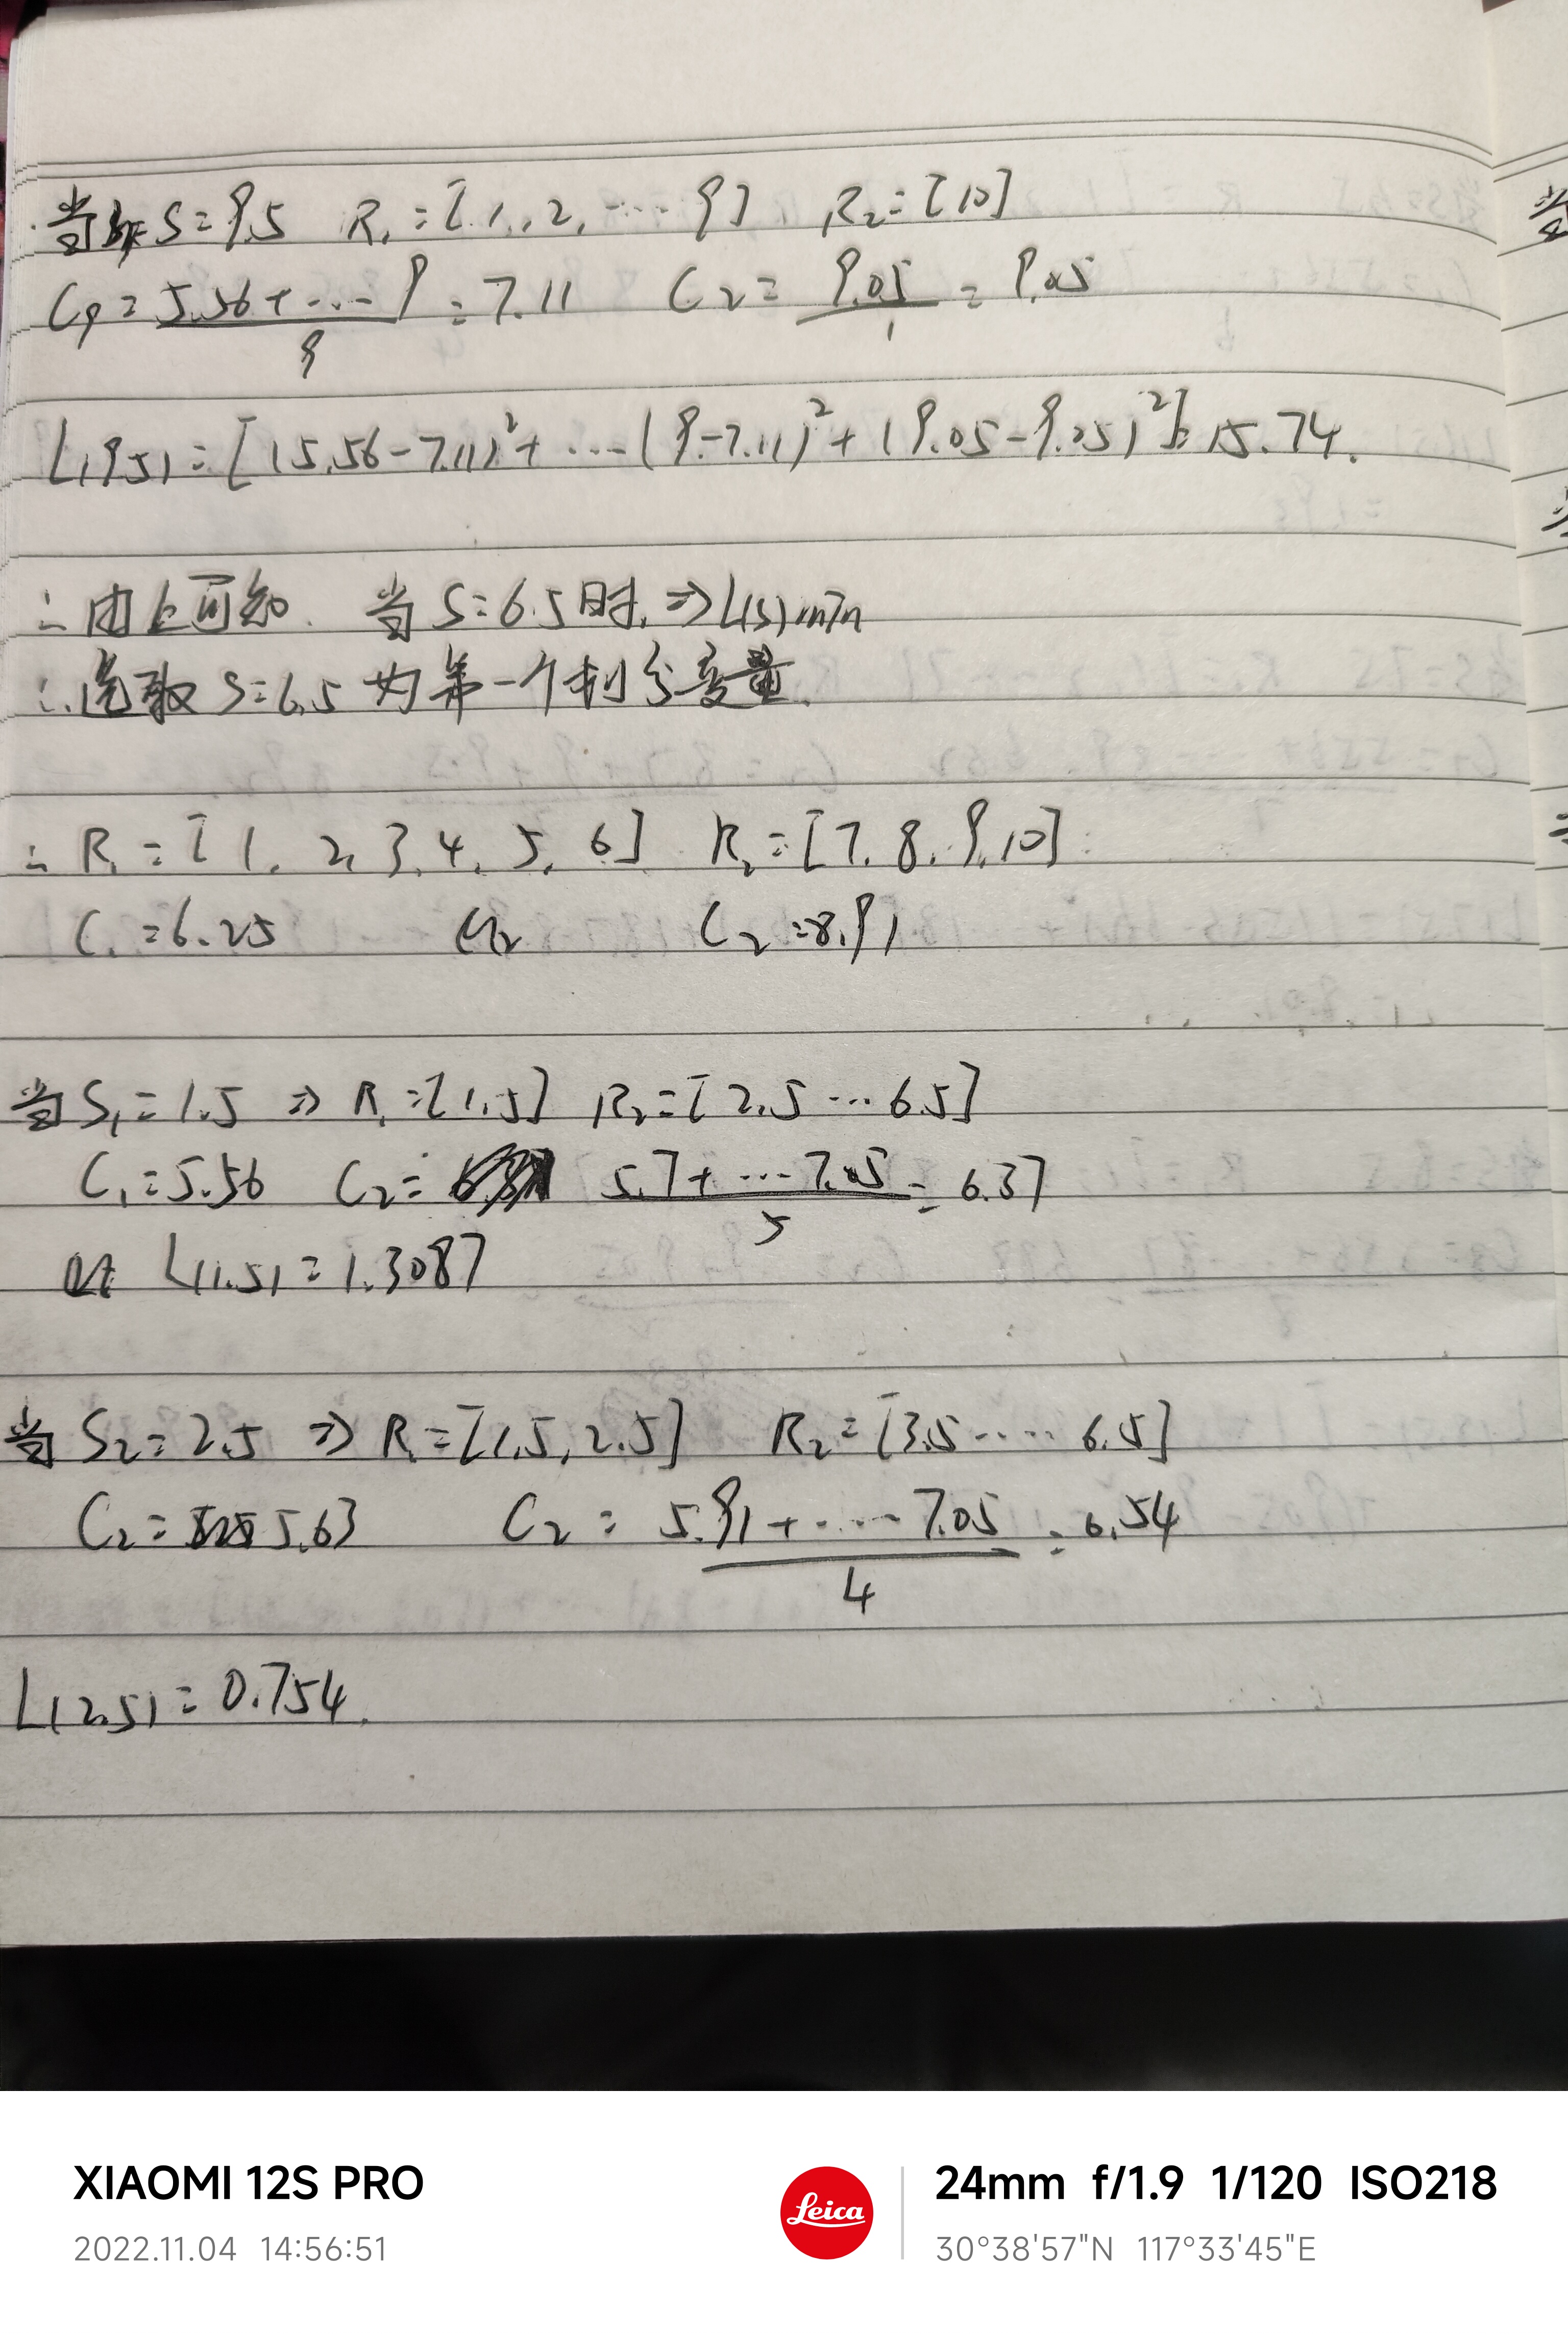 当 S=9.5 R₁=[1,2,……9] R₂=[10]
C₁=(5.56+…9)/9=7.11 C₂=9.05/1=9.05
L(9.5)=[(5.56-7.11)²+…(9-7.11)²+(9.05-9.05)²]=15.74.
∴由上可知. 当S=6.5时,⇒L(s)min
∴选取S=6.5为第一个划分变量.
∴R₁=[1, 2, 3, 4, 5, 6] R₂=[7, 8, 9, 10]
C₁=6.25 C₂=8.91
当S₁=1.5 ⇒ R₁=[1.5] R₂=[2.5…6.5]
C₁=5.56 C₂= (5.7+…7.05)/5=6.37
L(1.5)=1.3087
当S₂=2.5 ⇒ R₁=[1.5, 2.5] R₂=[3.5……6.5]
C₂=5.63 C₂=(5.91+……7.05)/4=6.54
L(2.5)=0.754.
XIAOMI 12S PRO
2022.11.04 14:56:51
Leica
24mm f/1.9 1/120 ISO218
30°38'57"N 117°33'45"E